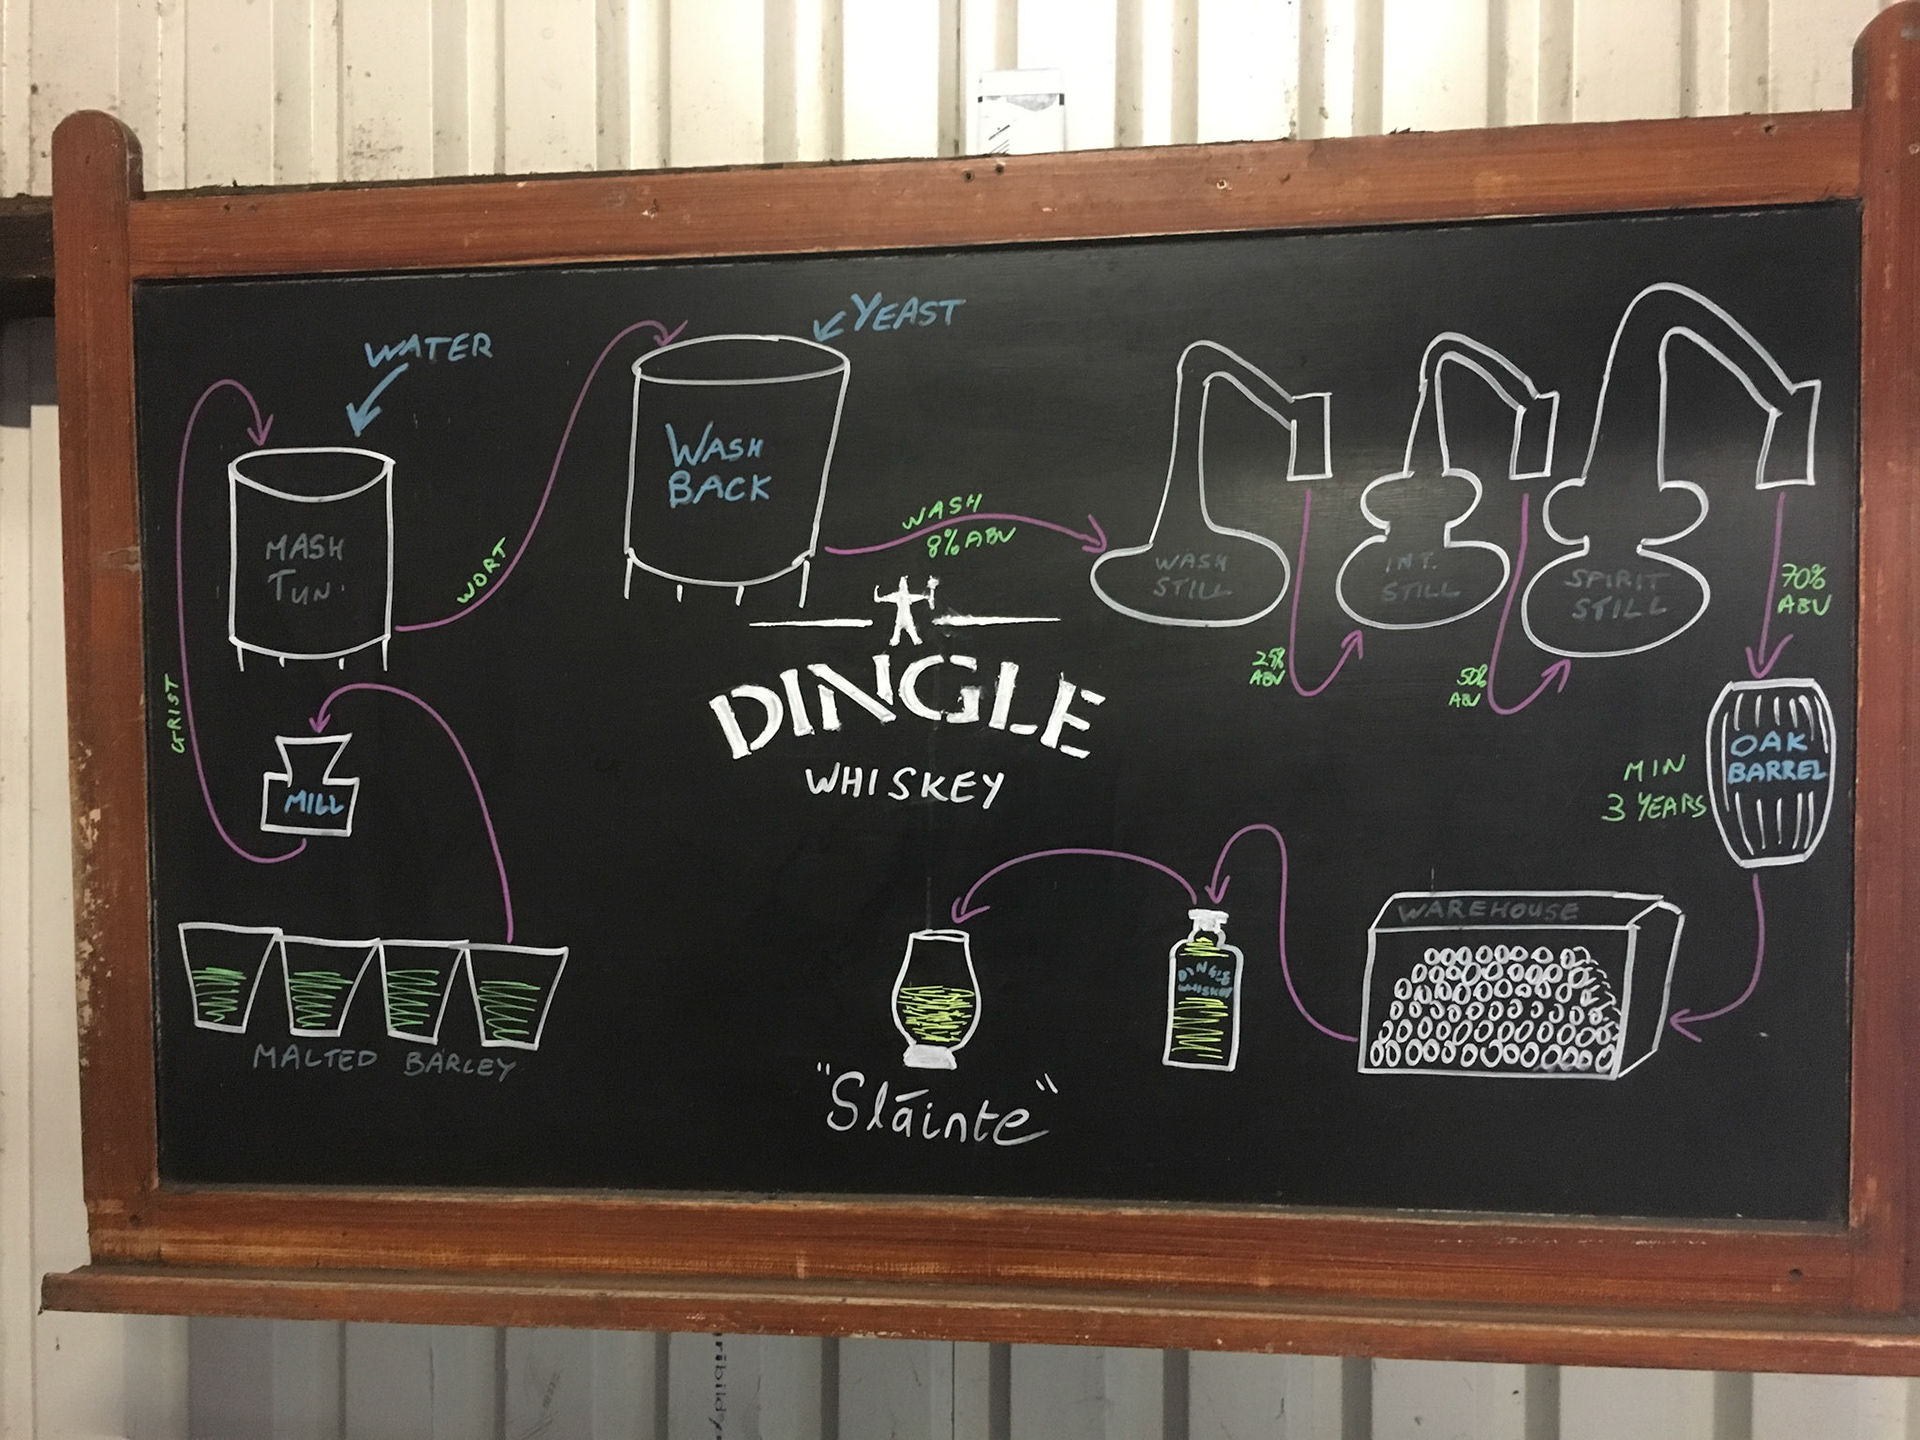 WATER
YEAST
MASH
TUN
WORT
WASH
BACK
WASH
8% ABV
WASH
STILL
INT.
STILL
SPIRIT
STILL
25%
ABV
50%
ABV
70%
ABV
GRIST
MILL
DINGLE
WHISKEY
OAK
BARREL
MIN
3 YEARS
WAREHOUSE
DINGLE
WHISKEY
MALTED BARLEY
"Sláinte"